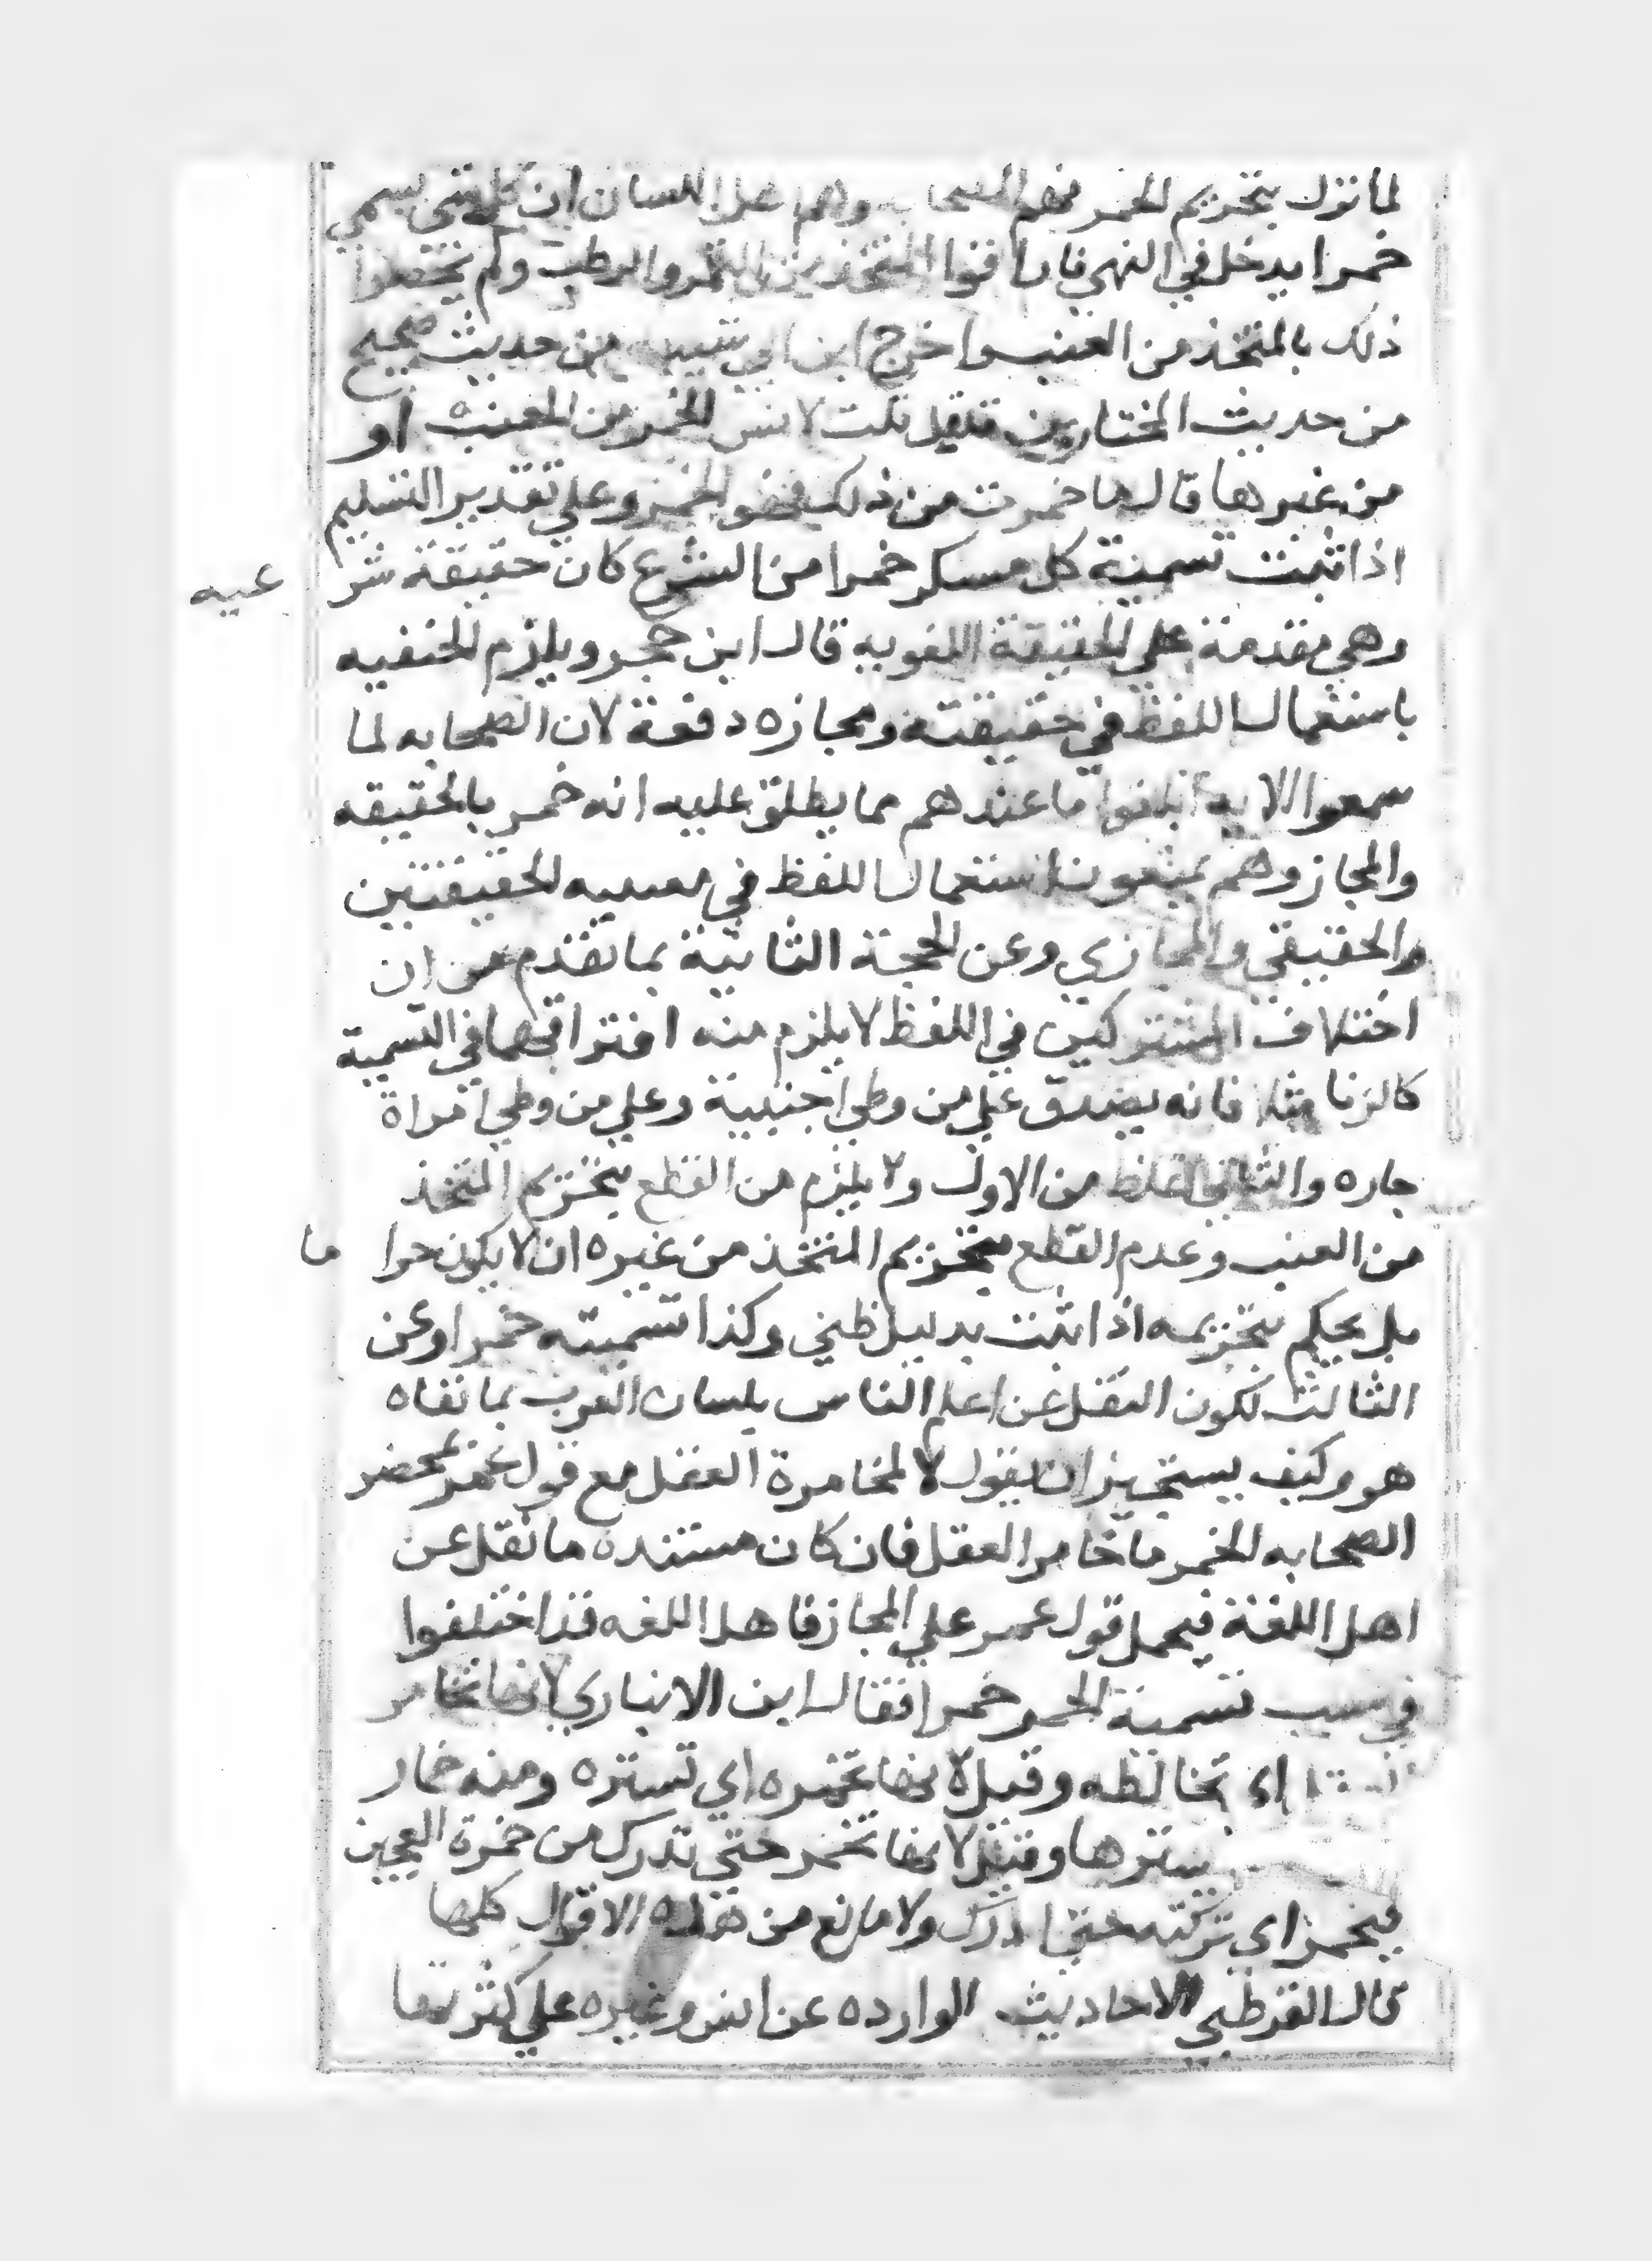 لما نزل بتحريم الخمر فهم الصحابه وهم اهل اللسان ان كل شي يسمي
خمرا يدخل في النهي فاراقوا المتخذ من التمر والرطب ولم يخصوا
ذلك بالمتخذ من العنب واخرج ابن ابي شيبه من حديث صحيح
من حديث المختار بن فلفل قلت لانس الخمر من العنب او
من غيرها قال ما خمرت من ذلك فهو الخمر وعلي تقدير التسليم
اذا ثبت تسمية كل مسكر خمرا من الشرع كان حقيقة شر عيه
وهي مقدمة علي الحقيقة اللغويه قال ابن حجر ويلزم الحنفيه
باستعمال اللفظ في حقيقته ومجازه دفعة لان الصحابه لما
سمعوا الايه اتلفوا ما عندهم مما يطلق عليه انه خمر بالحقيقه
والمجاز وهم يمنعون استعمال اللفظ في معنييه الحقيقتين
والحقيقي والمجازي وعن الحجة الثانية بما تقدم من ان
اختلاف المشتركين في اللفظ لا يلزم منه افتراقهما في التسمية
كالزنا مثلا فانه يصدق علي من وطي اجنبية وعلي من وطي امراة
جاره والثاني اغلظ من الاول ولا يلزم من القطع بتحريم المتخذ
من العنب وعدم القطع بتحريم المتخذ من غيره ان لا يكون حرا ما
بل يحكم بتحريمه اذا ثبت بدليل ظني وكذا تسميته خمرا وعن
الثالث لكون النقل عن اعلم الناس بلسان العرب بما نفاه
هو وكيف يستجيز ان يقول لا لمخامرة العقل مع قول عمر بمحضر
الصحابه الخمر ما خامر العقل فان كان مستنده ما نقل عن
اهل اللغة فيحمل قول عمر علي المجاز فاهل اللغه قد اختلفوا
في سبب تسمية الخمر خمرا فقال ابن الانباري لانها تخامر
اي تخالطه وقيل لانها تخمره اي تستره ومنه خمار
يسترها وقيل لانها تخمر حتي تدرك من خمرة العجين
فيخمر اي تركته حتي ادرك ولا مانع من هذه الاقوال كلها
قال القرطبي الاحاديث الوارده عن انس وغيره علي كثرتها